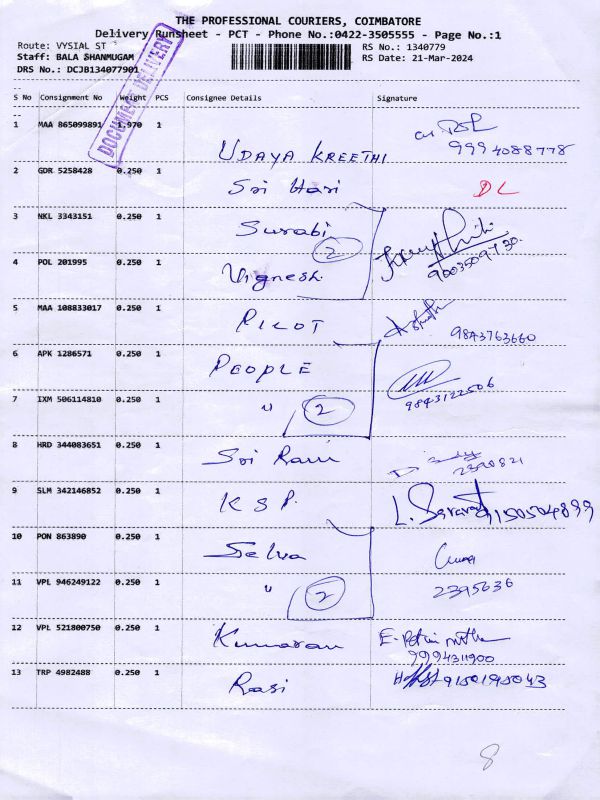 THE PROFESSIONAL COURIERS, COIMBATORE
Delivery Runsheet - PCT - Phone No.:0422-3505555 - Page No.:1
Route: VYSIAL ST
RS No.: 1340779
Staff: BALA SHANMUGAM
RS Date: 21-Mar-2024
DRS No.: DCJB134077901
DOCUMENT DELIVERY
S No Consignment No Weight PCS Consignee Details Signature
1 MAA 865099891 1.970 1 UDAYA KREETHI
9994088778
2 GDR 5258428 0.250 1 Sri Hari DL
3 NKL 3343151 0.250 1 Surabi
2
4 POL 201995 0.250 1 Vignesh
5 MAA 108833017 0.250 1 PILOT 9843763660
6 APK 1286571 0.250 1 PEOPLE
9843122506
7 IXM 506114810 0.250 1 " 2
8 HRD 344083651 0.250 1 Sri Ram
9 SLM 342146852 0.250 1 KSP
10 PON 863890 0.250 1 Selva
11 VPL 946249122 0.250 1 " 2 2395636
12 VPL 521800750 0.250 1 Kumaran
9994311900
13 TRP 4982488 0.250 1 Rasi 9150195043
8